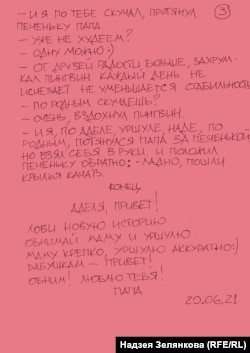 – И Я ПО ТЕБЕ СКУЧАЛ, ПРОТЯНУЛ ③
ПЕЧЕНЬКУ ПАПА.
– УЖЕ НЕ ХУДЕЕМ?
– ОДНУ МОЖНО :)
– ОТ ДРУЗЕЙ РАДОСТИ БОЛЬШЕ, ЗАХРУМ-
КАЛ ПИНГВИН. КАЖДЫЙ ДЕНЬ НЕ
ИСЧЕЗАЕТ НЕ УМЕНЬШАЕТСЯ СТАБИЛЬНОСТЬ
– ПО РОДНЫМ СКУЧАЕШЬ?
– ОЧЕНЬ, ВЗДОХНУЛ ПИНГВИН.
– И Я, ПО АДЕЛЕ, УРШУЛЕ, НАДЕ, ПО
РОДНЫМ, ПОТЯНУЛСЯ ПАПА ЗА ПЕЧЕНЬКОЙ
НО ВЗЯЛ СЕБЯ В РУКИ И ПОЛОЖИЛ
ПЕЧЕНЬКУ ОБРАТНО: – ЛАДНО, ПОШЛИ
КРЫЛЬЯ КАЧАТЬ.
КОНЕЦ
АДЕЛЯ, ПРИВЕТ!
ЛОВИ НОВУЮ ИСТОРИЮ
ОБНИМАЙ МАМУ И УРШУЛЮ.
МАМУ КРЕПКО, УРШУЛЮ АККУРАТНО :)
БАБУШКАМ – ПРИВЕТ!
ОБНИМ! ЛЮБЛЮ ТЕБЯ!
ПАПА
20.06.21
Надзея Зелянкова (RFE/RL)